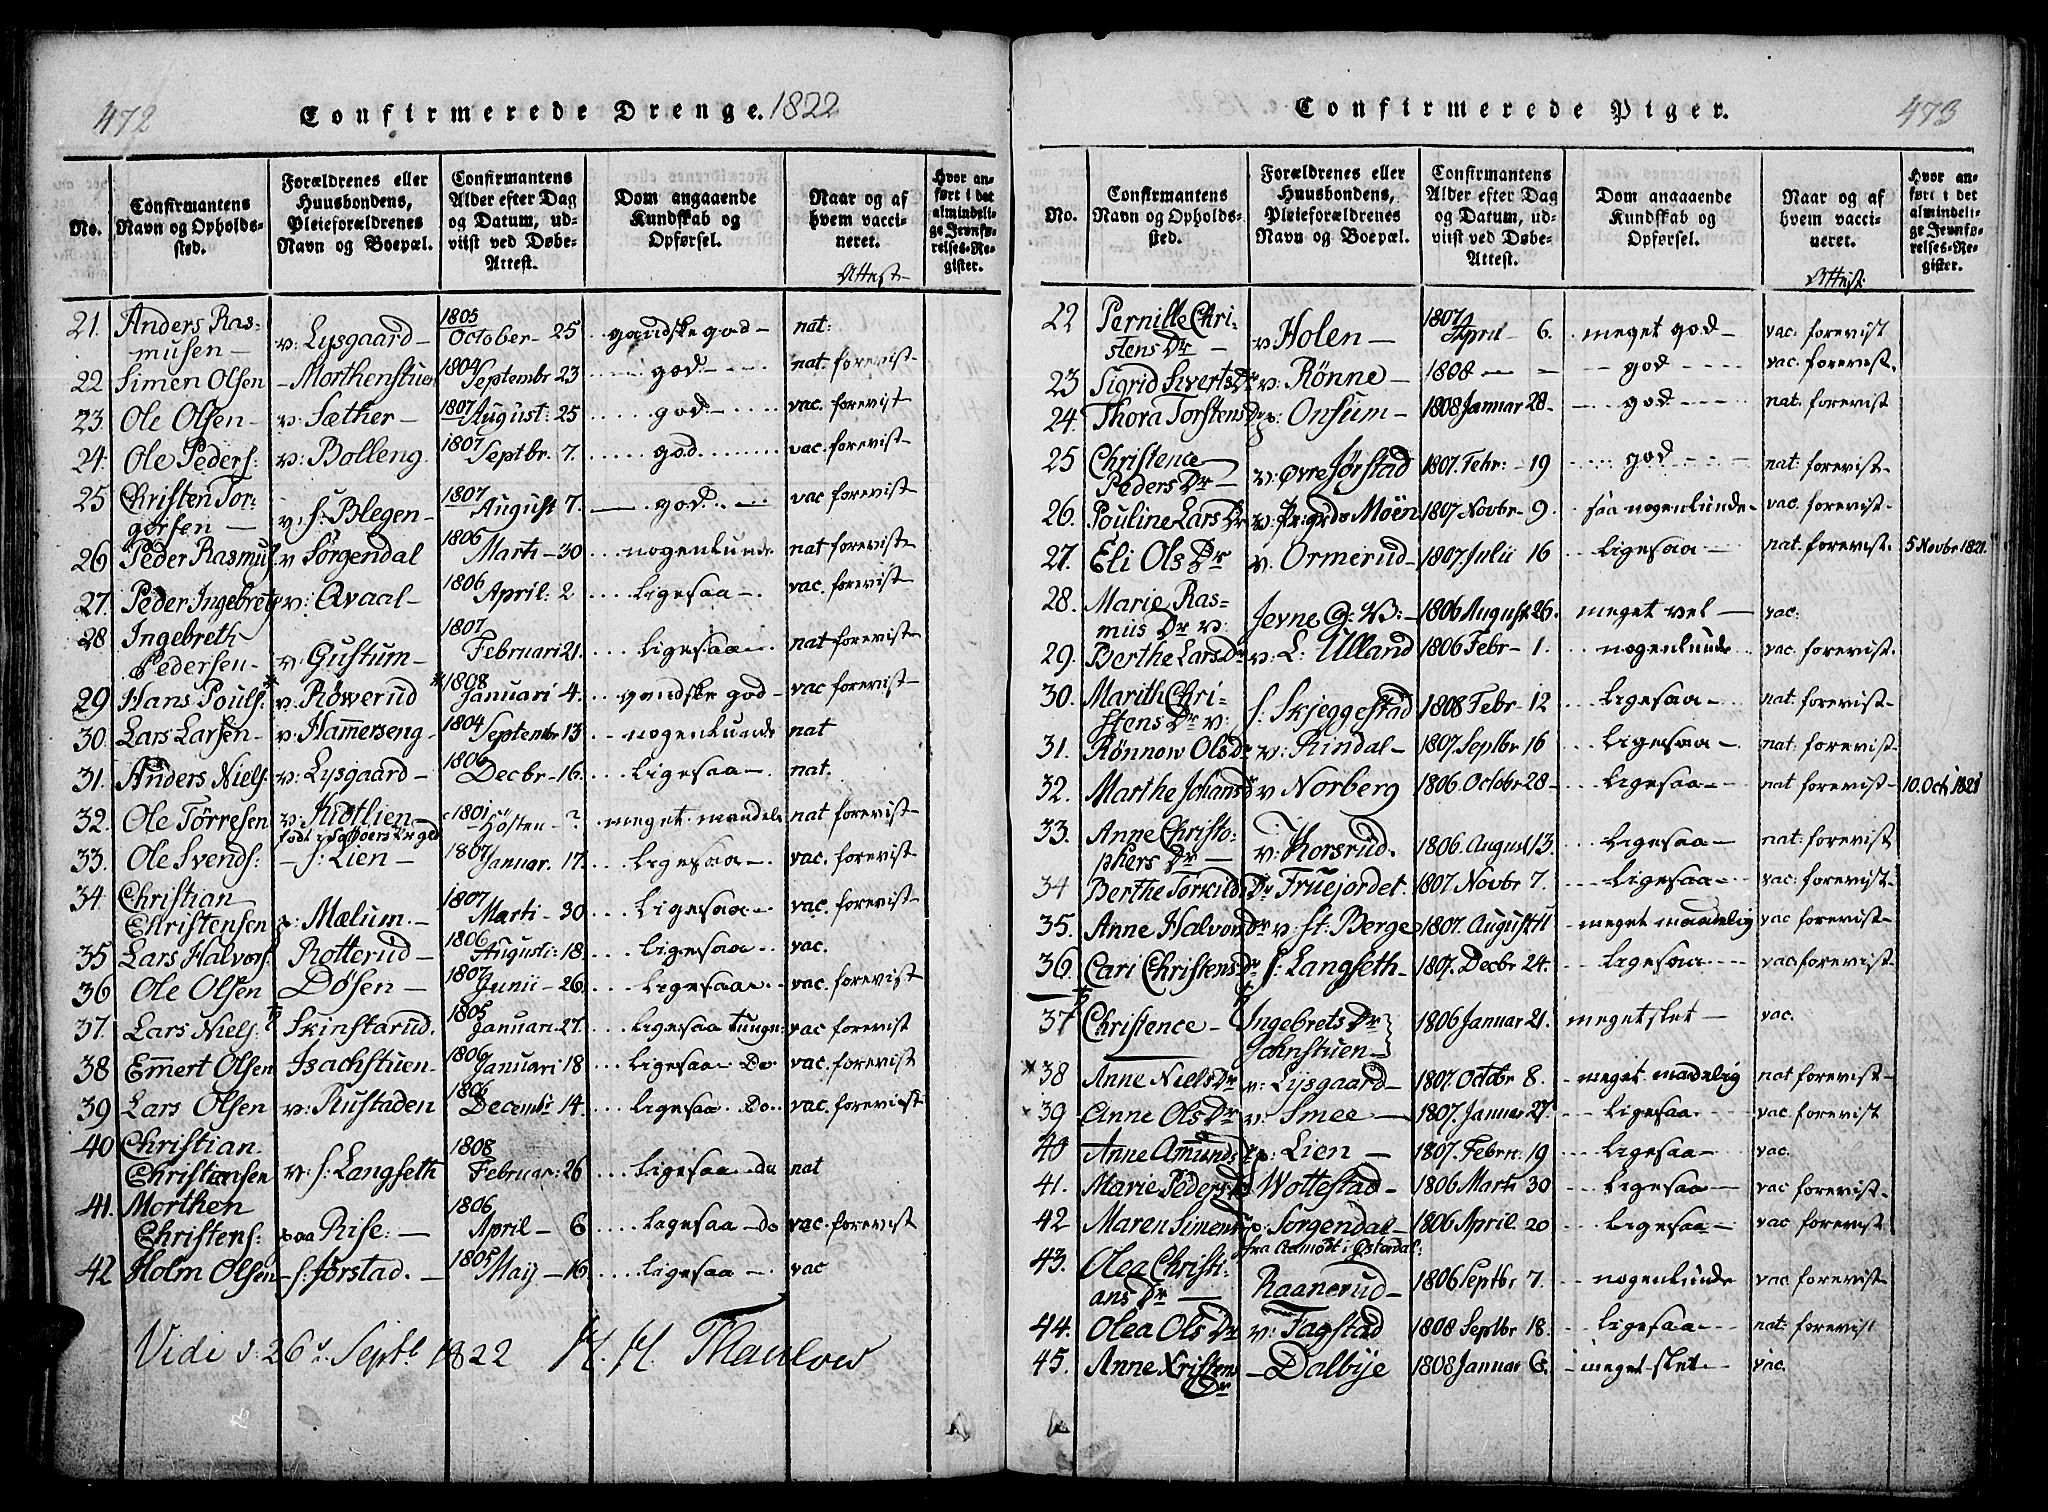 472
Confirmerede Drenge. 1822
No.
Confirmantens Navn og Opholds-sted.
Forældrenes eller Huusbondens, Pleieforældrenes Navn og Boepæl.
Confirmantens Alder efter Dag og Datum, ud-viist ved Døbe-Attest.
Dom angaaende Kundskab og Opførsel.
Naar og af hvem vacci-neret.
Attest
Hvor an-ført i det almindeli-ge Jevnfø-relses-Re-gister.
21. Anders Ras-musen - v: Lysgaard - 1805 October - 25 gandske god - nat:
22 Simen Olsen - Morthenstuen 1804 Septembr 23 god nat: forevist
23. Ole Olsen - v: Sæther - 1807 August: 25 god vac. forevist
24. Ole Peders: v: Bolleng. 1807 Septbr. 7. god vac. forevist
25 Christen Tor-gersen - v: s: Blegen - 1807 August 7. god vac forevist
26 Peder Rasmus: v Sørgendal 1806 Marti - 30 nogenlunde nat forevist
27. Peder Ingebrets v: Qvaal - 1806 April: 2 ligesaa - vac. forevist
28 Ingebreth Pedersen - v: Gustum - 1807 Februari 21. ligesaa nat forevist
29 Hans Pouls: v: Røwerud 1808 Januari 4. gandske god - vac forevist
30. Lars Larsen - v: Hammerseng - 1804 Septembr 13 nogenlunde nat
31. Anders Niels. v: Lysgaard - 1806 Decbr - 16. ligesaa - nat.
32. Ole Tørresen v: Kiøtlien 1801 Høsten - ? meget maadel nat forevist
33. Ole Svends: - s: Lien - 1807 Januar. 17. ligesaa - vac. forevist
34. Christian Christensen p: Mælum. - 1807 Marti - 30 ligesaa - vac. forevist
35 Lars Halvors. Rotterud - 1806 Augusti: 18. ligesaa vac.
36 Ole Olsen Døsen - 1807 Junii - 26. ligesaa vac. forevist
37. Lars Niels: Skinstarud. 1805 Januari. 27. ligesaa tunge: vac forevist
38 Emmert Olsen Isachstuen - 1806 Januari 18 ligesaa Do vac. forevist
39 Lars Olsen v: Rustaden 1806 Decembr 14. ligesaa Do vac. forevist
40 Christian Christiansen v: s: Langseth 1808 Februar: 26 ligesaa do nat
41. Morthen Christens: paa Rise: - 1806 April - 6 ligesaa do vac. forevist
42 Holm Olsen - s: Jørstad. - 1805 Maij - 16. ligesaa - vac
Vidi d: 26d Septb 1822 H. H. Thaulow
473
Confirmerede Piger.
No.
Confirmantens Navn og Opholds-sted.
Forældrenes eller Huusbondens, Pleieforældrenes Navn og Boepæl.
Confirmantens Alder efter Dag og Datum, ud-viist ved Døbe-Attest.
Dom angaaende Kundskab og Opførsel.
Naar og af hvem vacci-neret.
Attest:
Hvor an-ført i det almindeli-ge Jevnfø-relses-Re-gister.
22 Pernille Chri-stens Dr - v Holen - 1807 April - 6. meget god - vac: forevist
23 Sigrid Siverts Dr v: Rønne - 1808 - - god vac. forevist.
24. Thora Torstens Dr p: Onsum - 1808 Januar 28 - god nat. forevist
25 Christence Peders Dr - v: Øvre Jørstad 1807. Febr: - 19 god nat: forevist
26. Pouline Lars Dr v: Pr:grds Moen 1807 Novbr - 9. saa nogenlunde vac. forevist
27. Eli Ols Dr v: Ormerud - 1807. Julii 16 ligesaa nat. forevist. 5 Novbr 1821.
28. Marie Ras-mus Dr v: Jevne G: V: - 1806 August 26. meget vel - vac:
29. Berthe Lars Dr v: L: Ulland 1806 Febr - 1. nogenlunde vac. forevist
30. Marith Chri-stens Dr v: s. Skjeggestad 1808 Febr - 12 ligesaa - nat. forevist
31. Rønnow Ols Dr v: Rindal - 1807. Septbr 16 ligesaa - nat: forevist
32. Marthe Johans Dr v Norberg 1806. Octobr 28 - ligesaa - nat forevist 10. Oct 1821
33. Anne Christo-phers Dr - v: Korsrud. 1806. August 13. ligesaa - nat: forevist
34 Berthe Torkilds Dr Fruejordet. 1807. Novbr 7. ligesaa - vac: forevist
35. Anne Halvors Dr v: st: Berge 1807. August 11 meget maadelig vac forevist
36. Cari Christens Dr s: Langseth - 1807. Decbr 24. ligesaa vac forevist
37 Christence - Ingebrets Dr Johnstuen - 1806 Januar 21. meget slet - vac.
38 Anne Niels Dr v: Lysgaard - 1807. Octobr 8. meget madelig nat forevist
39. Anne Ols Dr v: Smee - 1807. Januar 27. ligesaa vac. forevist
40 Anne Amunds Dr p: Lien - 1807. Februr. 19 ligesaa - vac.
41. Marie Peders Dr Wottestad - 1806 Marti 30 ligesaa vac forevist
42 Maren Simens Dr p: Sørgendal - 1806 April. 20 ligesaa - vac forevist
43. Olea Christi-ans Dr - fra Aamodt i Østerdal: Raanerud - 1806 Septbr 7. nogenlunde vac. forevist
44. Olea Ols Dr v: Fagstad 1808 Septbr 18. ligesaa nat: forevist
45. Anne Kristens Dr - Dalbye 1808 Januar 6. meget slet - vac.